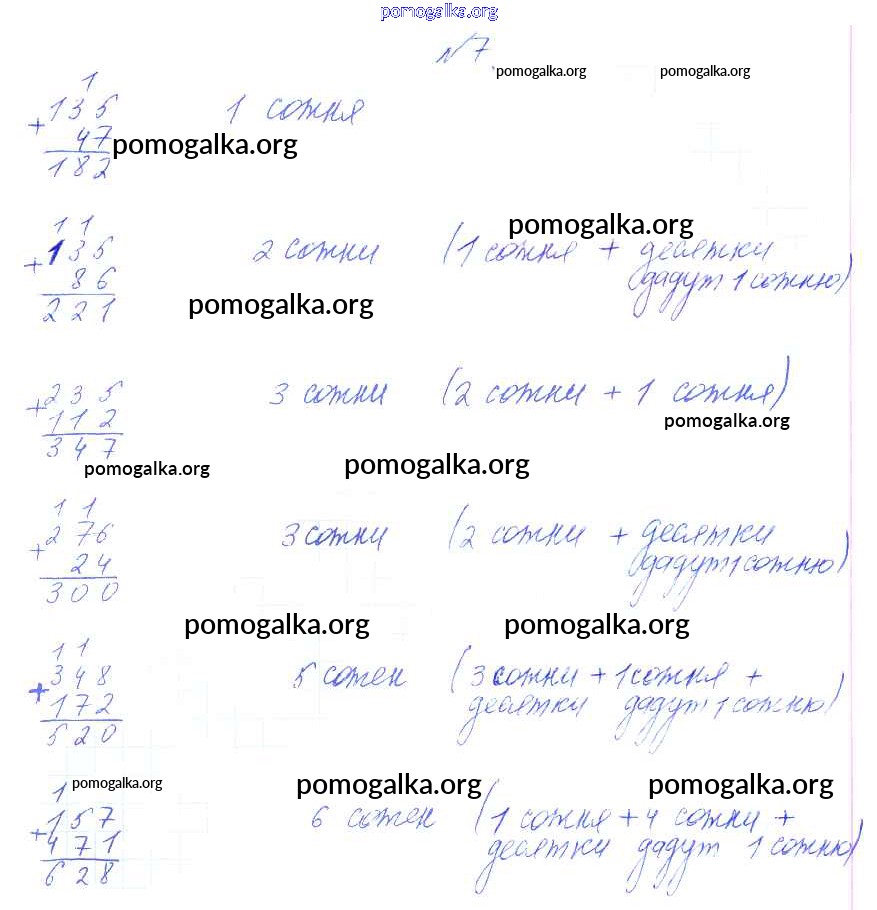 pomogalka.org
№7
pomogalka.org pomogalka.org
1
135 1 сотня
+
47 pomogalka.org
182
pomogalka.org
1 1
135 2 сотни (1 сотня + десятки
+
86 дадут 1 сотню)
221 pomogalka.org
235 3 сотни (2 сотни + 1 сотня)
+
112 pomogalka.org
347
pomogalka.org pomogalka.org
1 1
276 3 сотни (2 сотни + десятки
+
24 дадут 1 сотню)
300
pomogalka.org pomogalka.org
1 1
348 5 сотен (3 сотни + 1 сотня +
+
172 десятки дадут 1 сотню)
520
pomogalka.org pomogalka.org pomogalka.org
1
157 6 сотен (1 сотня + 4 сотни +
+
471 десятки дадут 1 сотню)
628